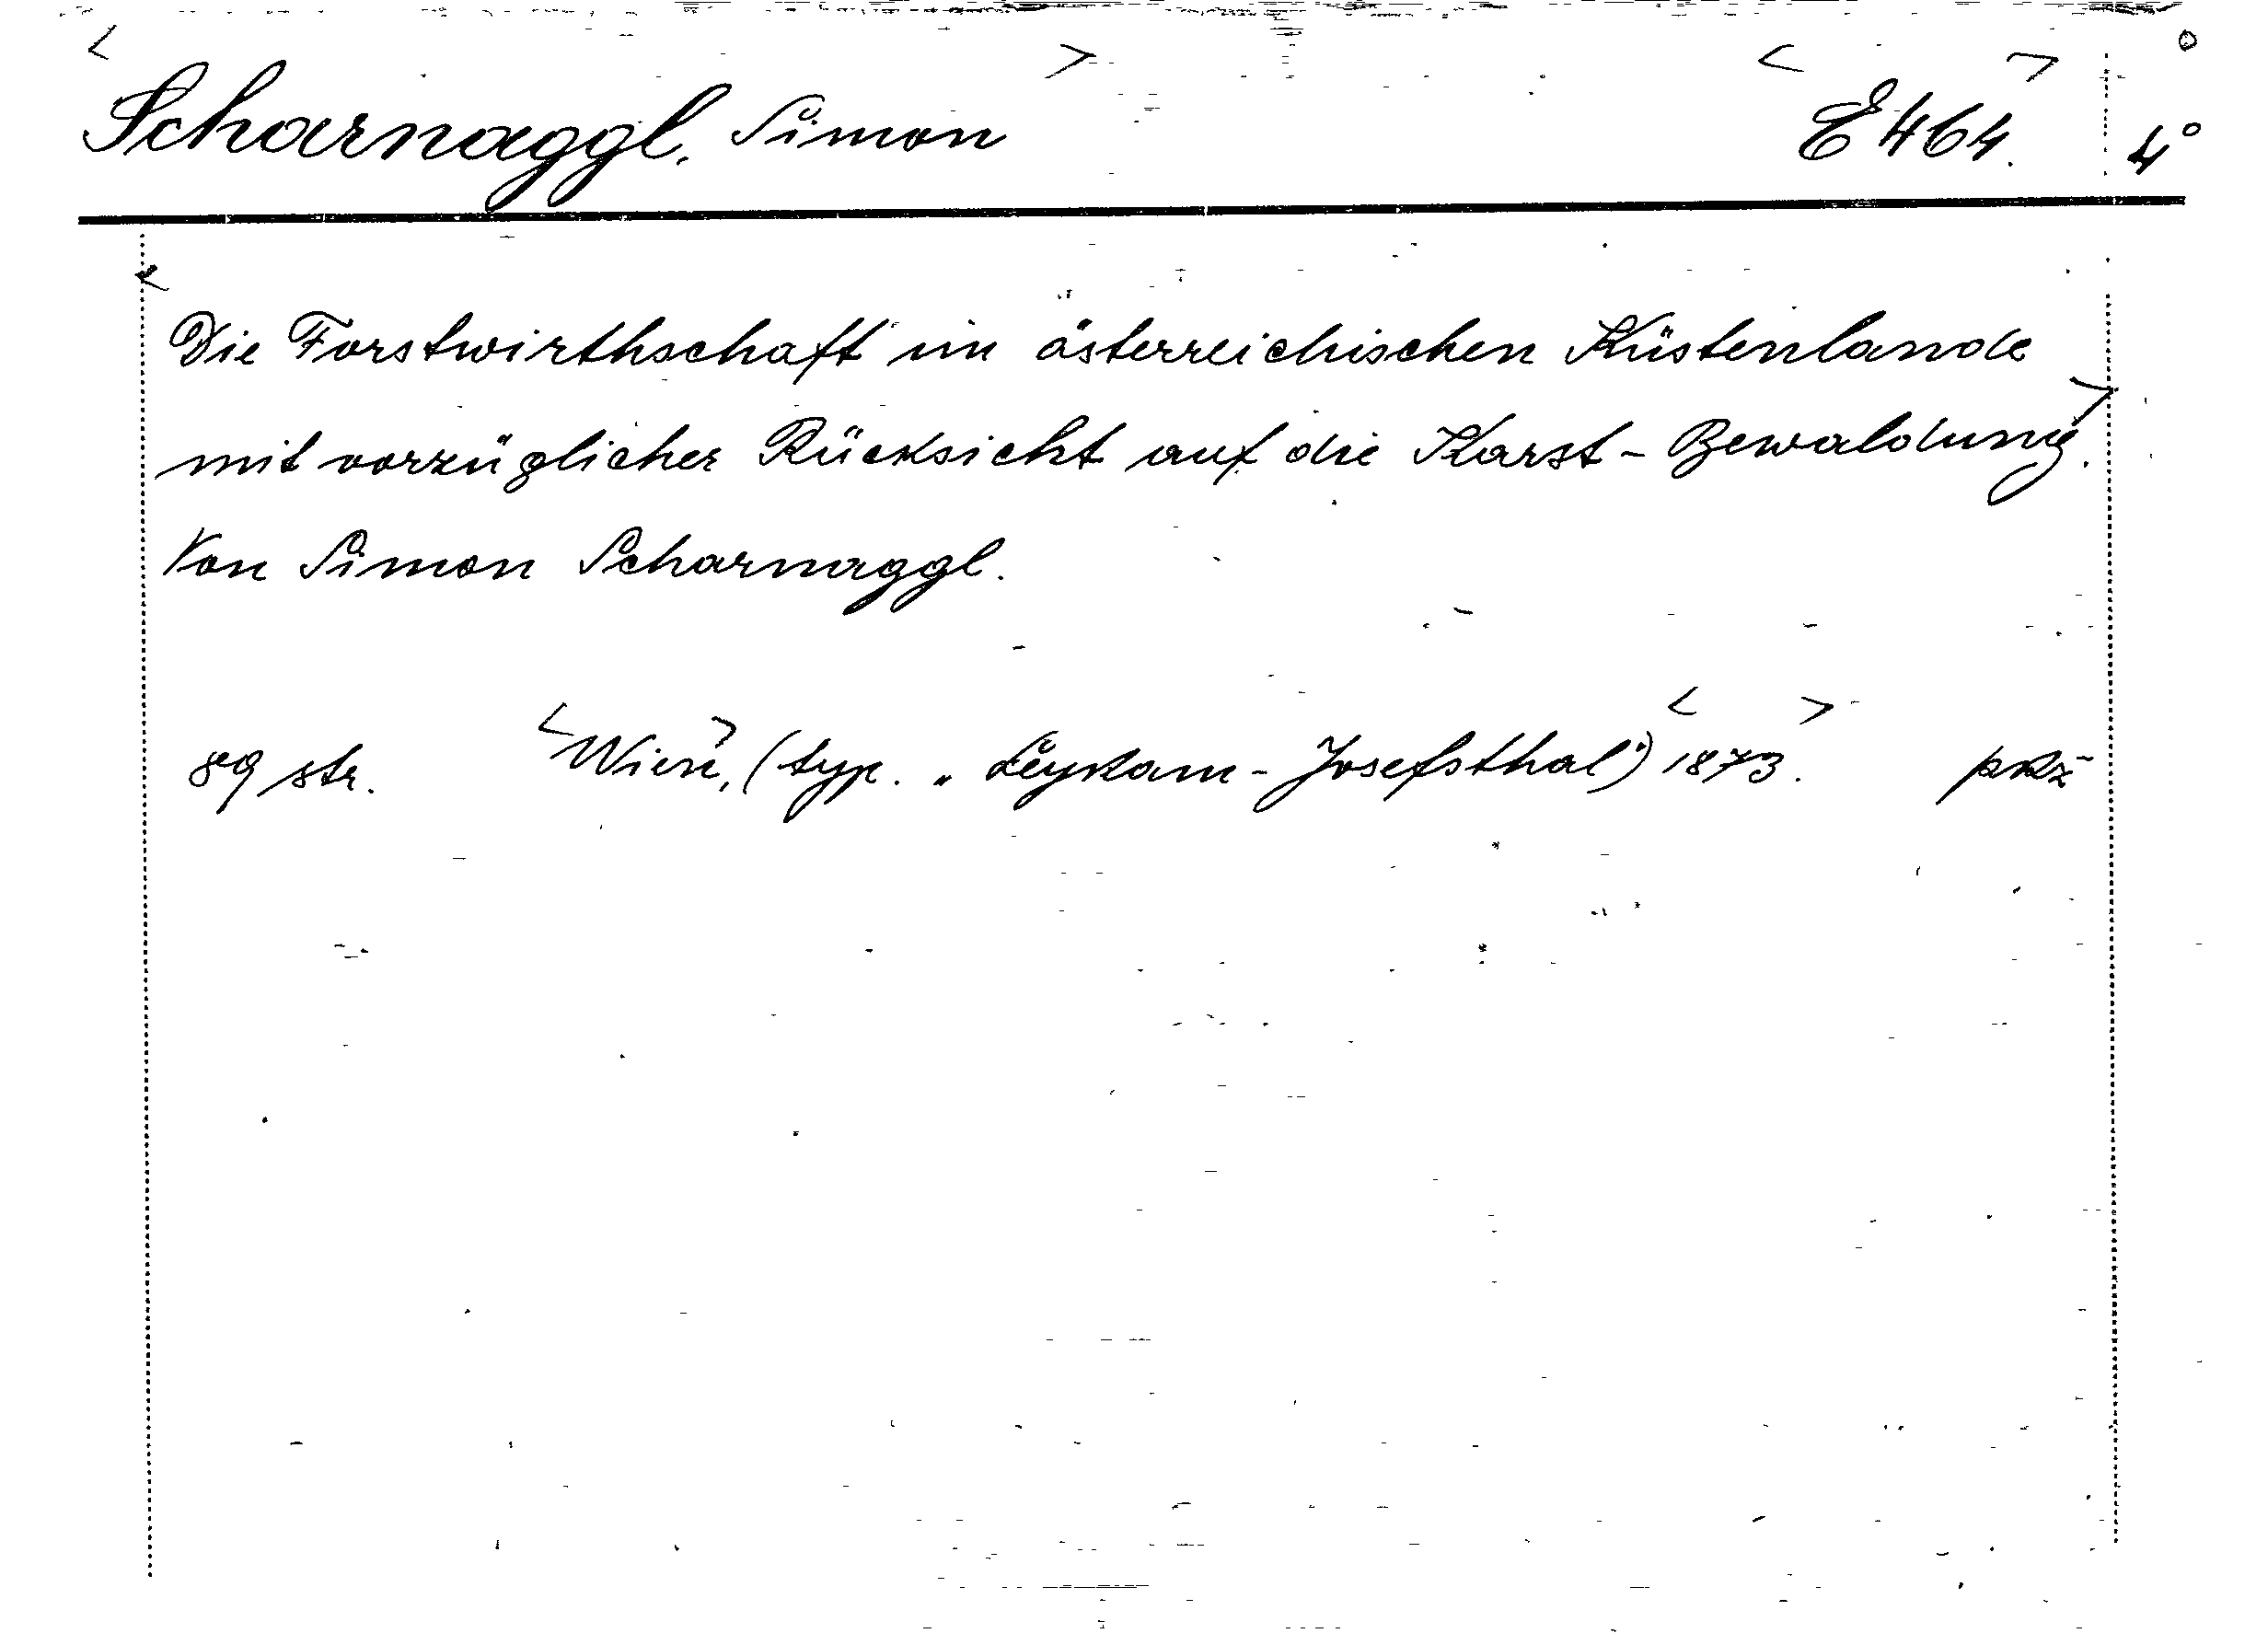 Scharnaggl, Simon E 464. 4°
Die Forstwirthschaft im österreichischen Küstenlande
mit vorzüglicher Rücksicht auf die Karst - Bewaldung.
Von Simon Scharnaggl.
89 str. Wien, (typ. „Leykam - Josefsthal") 1873.